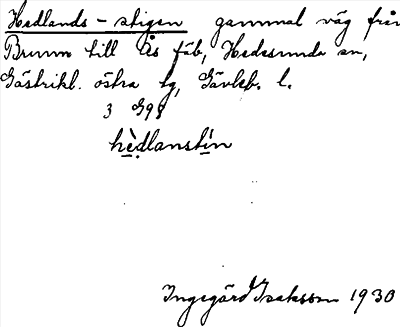 Hedlands-stigen gammal väg från
Brunn till Ås fäb, Hedesunda sn,
Gästrikl. östra tg, Gävleb. l.
3 G98
hèdlanstín
Ingegärd Isaksson 1930